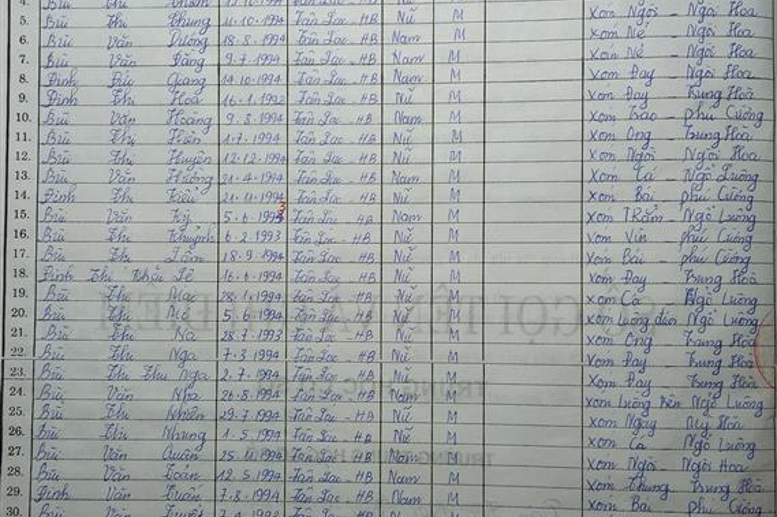 5. Bùi Thị Chung 11.10.1994 Tân Lạc - HB Nữ M Xóm Ngòi - Ngòi Hoa
6. Bùi Văn Dương 18.8.1994 Tân Lạc - HB Nam M Xóm Nẻ - Ngòi Hoa
7. Bùi Văn Đăng 9.7.1994 Tân Lạc - HB Nam M Xóm Nẻ - Ngòi Hoa
8. Đinh Đức Giang 14.10.1994 Tân Lạc - HB Nam M Xóm Đay - Ngòi Hoa
9. Đinh Thị Hoà 16.1.1992 Tân Lạc - HB Nữ M Xóm Đay - Trung Hoà
10. Bùi Văn Hoàng 9.8.1994 Tân Lạc - HB Nam M Xóm Bao - Phú Cường
11. Bùi Thị Hiên 1.7.1994 Tân Lạc - HB Nữ M Xóm Ong - Trung Hoà
12. Bùi Thị Huyền 12.12.1994 Tân Lạc - HB Nữ M Xóm Ngòi - Ngòi Hoa
13. Bùi Văn Hưởng 21.4.1994 Tân Lạc - HB Nam M Xóm Cá - Ngổ Luông
14. Đinh Thị Kiều 21.11.1994 Tân Lạc - HB Nữ M Xóm Bái - Phú Cường
15. Bùi Văn Kỳ 5.6.199 3 Tân Lạc - HB Nam M Xóm Trẳm - Ngổ Luông
16. Bùi Thị Khuỳnh 6.2.1993 Tân Lạc - HB Nữ M Xóm Vin - Phú Cường
17. Bùi Thị 18.9.1994 Tân Lạc - HB Nữ M Xóm Bái - Phú Cường
18. Đinh Thị 16.6.1994 Tân Lạc - HB Nữ M Xóm Đay - Trung Hoà
19. Bùi Thị Mạc 28.1.1994 Tân Lạc - HB Nữ M Xóm Cá Ngổ Luông
20. Bùi Thị 5.6.1994 Tân Lạc - HB Nữ M Xóm Luông Ngổ Luông
21. Bùi Thị Na 28.7.1993 Tân Lạc - HB Nữ M Xóm Ong Trung Hoà
22. Bùi Thị Nga 7.3.1994 Tân Lạc - HB Nữ M Xóm Đay - Trung Hoà
23. Bùi Thị Thu Nga 2.7.1994 Tân Lạc - HB Nữ M Xóm Đay - Trung Hoà
24. Bùi Văn Nha 26.8.1994 Tân Lạc - HB Nam M Xóm Luông Trên Ngổ Luông
25. Bùi Thị Nhiên 29.7.1994 Tân Lạc - HB Nữ M Xóm Ngay Mỹ Hoà
26. Bùi Thị Nhung 1.5.1994 Tân Lạc - HB Nữ M Xóm Cá - Ngổ Luông
27. Bùi Văn Quân 25.11.1994 Tân Lạc - HB Nam M Xóm Ngòi - Ngòi Hoa
28. Bùi Văn Toản 12.5.1994 Tân Lạc - HB Nam M Xóm Thung - Trung Hoà
29. Đinh Văn Tuấn 7.8.1994 Tân Lạc - HB Nam M Xóm Bái - Phú Cường
30. Bùi Văn